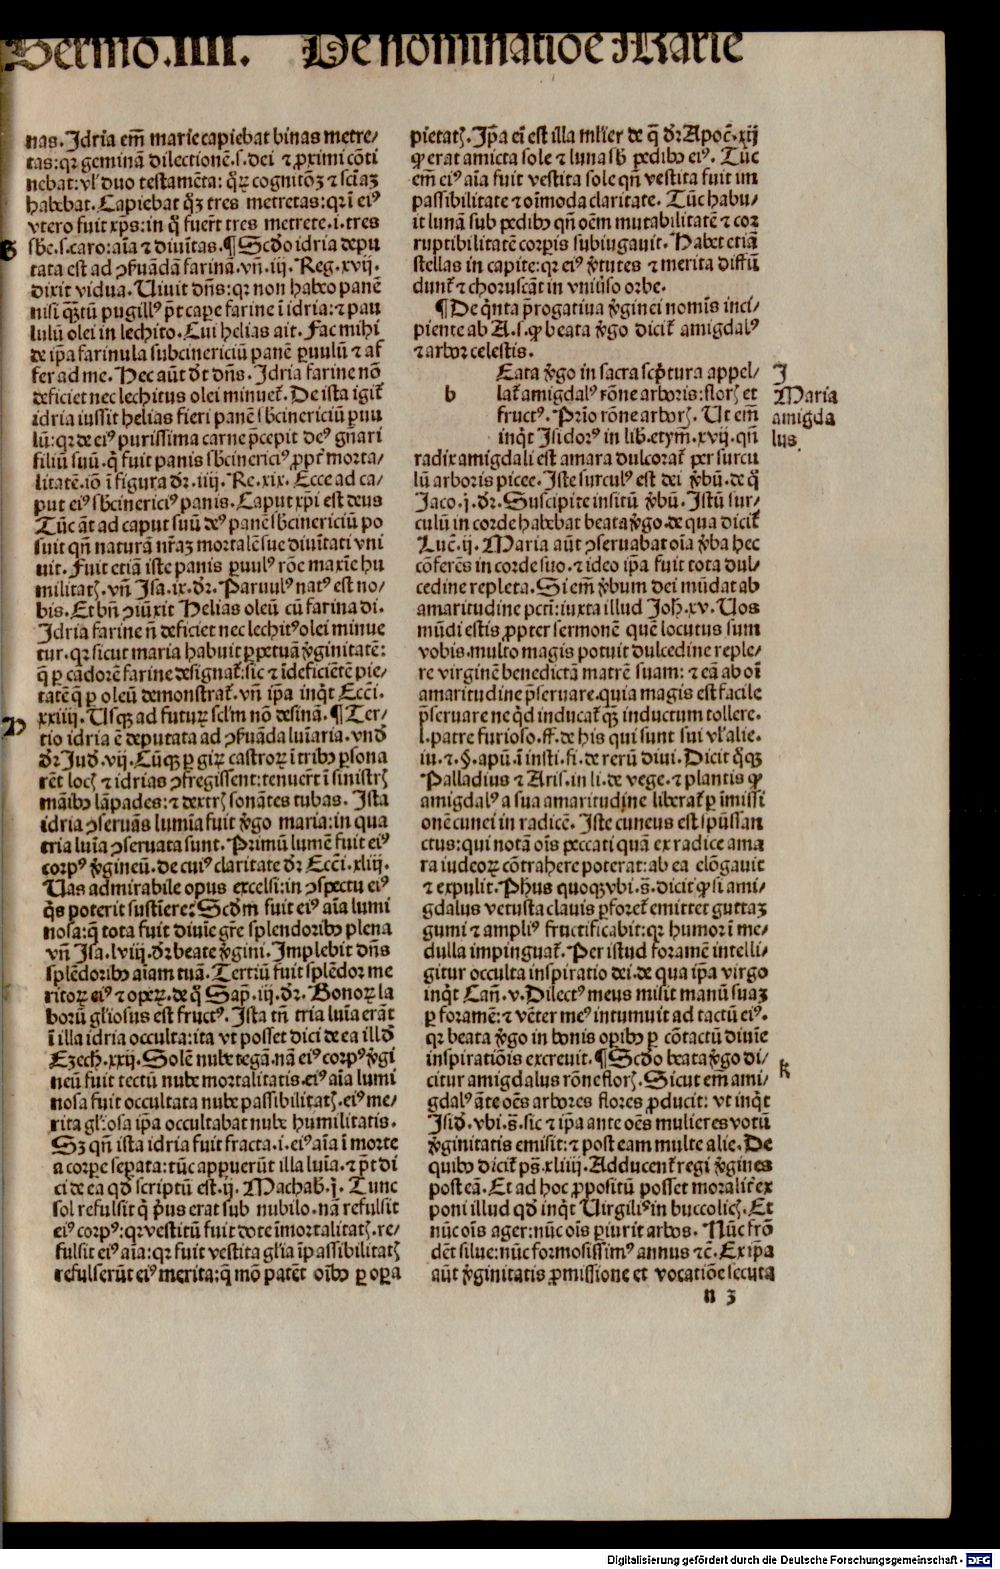 Sermo .IIII. De nominatiõe Marie
nas. Idria em̃ marie capiebat binas metre⸗
tas: qr geminã dilectionẽ. s. dei ⁊ ꝓximi cõti
nebat: vl' duo testamẽta: q̃ꝝ cognitõꝫ ⁊ sciã̃ꝫ
habebat. Capiebat q̃ꝫ tres metretas: qr ĩ eiꝰ
vtero fuit xp̃s: in q̃ fuer̃t tres metrete .i. tres
sb̃e .s. caro: aĩa ⁊ diuĩtas. ¶ Scd̃o idria depu
tata est ad ꝯẜuãdã farinã. vñ .iij. Reg. xvij.
dixit vidua. Uiuit dñs: qr non habeo panẽ
nisi q̃ꝫtũ pugillꝰ p̃t cape farine ĩ idria: ⁊ pau
lulũ olei in lechito. Cui helias ait. Fac mihi
de ip̃a farinula subcinericiũ panẽ ꝑuulũ ⁊ af
fer ad me. Hec aũt dr̃t dñs. Idria farine nõ
deficiet nec lechitus olei minuet̃. De ista igit̃
idria iussit helias fieri panẽ sb̃cinericiũ ꝑuu
lũ: qr de eiꝰ purissima carne p̃cepit deꝰ gnari
filiũ suũ. q̃ fuit panis sb̃cinericiꝰ ꝓpt̃ morta⸗
litatẽ. iõ ĩ figura dr̃ .iiij. Re. xix. Ecce ad ca⸗
put eiꝰ sb̃cinericiꝰ panis. Caput xp̃i est deus
Tũc ãt ad caput suũ deꝰ panẽ sb̃cinericiũ po
suit qñ naturã nr̃aꝫ mortalẽ sue diuĩtati vni
uit. Fuit etiã iste panis ꝑuulꝰ rõe maxĩe hu
militatꝭ. vñ Isa. ix. dr̃. Paruulꝰ natꝰ est no⸗
bis. Et bñ ꝯiũxit Helias oleũ cũ farina di.
Idria farine ñ deficiet nec lechitꝰ olei minue
tur. qr sicut maria habuit ꝑpetuã v̓ginitatẽ:
q̃ ꝑ cãdorẽ farine designat̃: sic ⁊ ĩdeficiẽtẽ pie⸗
tatẽ q̃ ꝑ oleũ demonstrat̃. vñ ip̃a inq̃t Ecci.
xxiiij. Usqꝫ ad futuꝝ scl'm nõ desinã. ¶ Ter⸗
tio idria ẽ deputata ad ꝯẜuãda luĩaria. vnd̃
dr̃ Jud̃. vij. Cũqꝫ ꝑ giꝝ castroꝝ ĩ tribꝰ ꝑsona
rẽt locꝭ ⁊ idrias ꝯfregissent: tenuer̃t ĩ sinistrꝭ
mãibꝰ lãpades: ⁊ dextrꝭ sonãtes tubas. Ista
idria ꝯseruãs lumĩa fuit v̓go maria: in qua
tria luĩa ꝯseruata sunt. Primũ lumẽ fuit eiꝰ
corpꝰ v̓gineũ. de cuiꝰ claritate dr̃ Ecci. xliij.
Uas admirabile opus excelsi: in ꝯspectu eiꝰ
q̃s poterit sustĩere: Scd̃m fuit eiꝰ aĩa lumi
nosa: q̃ tota fuit diuie gr̃e splendoribꝰ plena
vñ Isa. lviij. dr̃ beate v̓gini. Implebit dñs
splẽdoribꝰ aĩam tuã. Tertiũ fuit splẽdor me
ritoꝝ eiꝰ ⁊ opeꝝ. de q̃ Sap̃. iij. dr̃. Bonoꝝ la
borũ gl'iosus est fructꝰ. Ista tñ tria luĩa erãt
ĩ illa idria occulta: ita vt posset dici de ea illd̃
Ezech. xxij. Solẽ nube tegã. nã eiꝰ corpꝰ v̓gi
neũ fuit tectũ nube mortalitatis. eiꝰ aĩa lumi
nosa fuit occultata nube passibilitatꝭ. eiꝰ me⸗
rita gl'iosa ip̃a occultabat nube humilitatis.
Sꝫ qñ ista idria fuit fracta .i. eiꝰ aĩa ĩ morte
a corpe seꝑata: tũc appuerũt illa luĩa. ⁊ p̃t di
ci de ea qd̃ scriptũ est .ij. Machab̃. j. Tunc
sol refulsit q̃ p̓us erat sub nubilo. nã refulsit
eiꝰ corpꝰ: qr vestitũ fuit dote ĩmortalitatꝭ. re⸗
fulsit eiꝰ aĩa: qr fuit vestita gl'ia ĩp̃assibilitatꝭ
refulserũt eiꝰ merita: q̃ mõ patẽt oĩbꝰ ꝑ oꝑa
G
H
pietatꝭ. Ip̃a eĩ est illa ml'ier de q̃ dr̃ Apoc̃. xij
ꝙ erat amicta sole ⁊ luna sb̃ pedibꝰ eiꝰ. Tũc
em̃ eiꝰ aĩa fuit vestita sole qñ vestita fuit im
passibilitate ⁊ oĩmoda claritate. Tũc habu⸗
it lunã sub pedibꝰ qñ oẽm mutabilitatẽ ⁊ cor
ruptibilitatẽ corꝑis subiugauit. Habet etiã
stellas in capite: qr eiꝰ v̓tutes ⁊ merita diffũ
dunt̃ ⁊ choruscãt in vniũso orbe.
¶ De q̃nta p̃rogatiua v̓ginei nomĩs inci⸗
piente ab A. s. ꝙ beata v̓go dicit̃ amigdalꝰ
⁊ arbor celestis.
b Eata v̓go in sacra scp̃tura appel⸗
lat̃ amigdalꝰ rõne arboris: florꝭ et
fructꝰ. Pr̃io rõne arborꝭ. Ut em̃
inq̃t Isidorꝰ in lib. etym̃. xvij. qñ
radix amigdali est amara dulcorat̃ per surcu
lũ arboris picee. Iste surculꝰ est dei v̓bũ. de q̃
Jaco. j. dr̃. Suscipite insitũ v̓bũ. Istũ sur⸗
culũ in corde habebat beata v̓go. de qua dicit̃
Luc̃. ij. Maria aũt ꝯseruabat oĩa v̓ba hec
cõferẽs in corde suo. ⁊ ideo ip̃a fuit tota dul⸗
cedine repleta. Si em̃ v̓bum dei mũdat ab
amaritudine pctĩ: iuxta illud Joh̃. xv. Uos
mũdi estis ꝓpter sermonẽ quẽ locutus sum
vobis. multo magis potuit dulcedine reple⸗
re virginẽ benedictã matrẽ suam: ⁊ eã ab oĩ
amaritudine p̃seruare. quia magis est facile
p̃seruare ne q̃d inducat̃ q̃ꝫ inductum tollere.
l. patre furioso. ff. de his qui sunt sui vl' alie.
iu. ⁊ .§. apũ. ĩ insti. fi. de rerũ diui. Dicit q̃qꝫ
Palladius ⁊ Aris. in li. de vege. ⁊ plantis ꝙ
amigdalꝰ a sua amaritudine liberat̃ ꝑ ĩmissi
onẽ cunei in radicẽ. Iste cuneus est sp̃ussan
ctus: qui notã oĩs peccati quã ex radice ama
ra iudeoꝝ cõtrahere poterat: ab ea elõgauit
⁊ expulit. Ph̃us quoqꝫ vbi. s̃. dicit ꝙ si ami⸗
gdalus vetusta clauis ꝑforet̃ emittet guttaꝫ
gumi ⁊ ampliꝰ fructificabit: qr humor ĩ me⸗
dulla impinguat̃. Per istud foramẽ intelli⸗
gitur occulta inspiratio dei. de qua ip̃a virgo
inq̃t Cañ. v. Dilectꝰ meus misit manũ suaꝫ
ꝑ foramẽ: ⁊ vẽter meꝰ intumuit ad tactũ eiꝰ.
qr beata v̓go in bonis oꝑibꝰ ꝑ cõtactũ diuĩe
inspiratiõis excreuit. ¶ Scd̃o beata v̓go di⸗
citur amigdalus rõne florꝭ. Sicut em̃ ami⸗
gdalꝰ ãte oẽs arbores flores ꝓducit: vt inq̃t
Isid̃. vbi. s̃. sic ⁊ ip̃a ante oẽs mulieres votũ
v̓ginitatis emisit: ⁊ post eam multe alie. De
quibꝰ dicit̃ ps̃. xliiij. Adducent̃ regi v̓gines
post eã. Et ad hoc ꝓpositũ posset moralit̃ ex
poni illud qd̃ inq̃t Uirgiliꝰ in buccolicꝭ. Et
nũc oĩs ager: nũc oĩs ꝑturit arbos. Nũc frõ
dẽt silue: nũc formosissimꝰ annus ⁊c̃. Ex ip̃a
aũt v̓ginitatis ꝓmissione et vocatiõe secuta
J
Maria
amigda
lus.
k
n 3
Digitalisierung gefördert durch die Deutsche Forschungsgemeinschaft - DFG